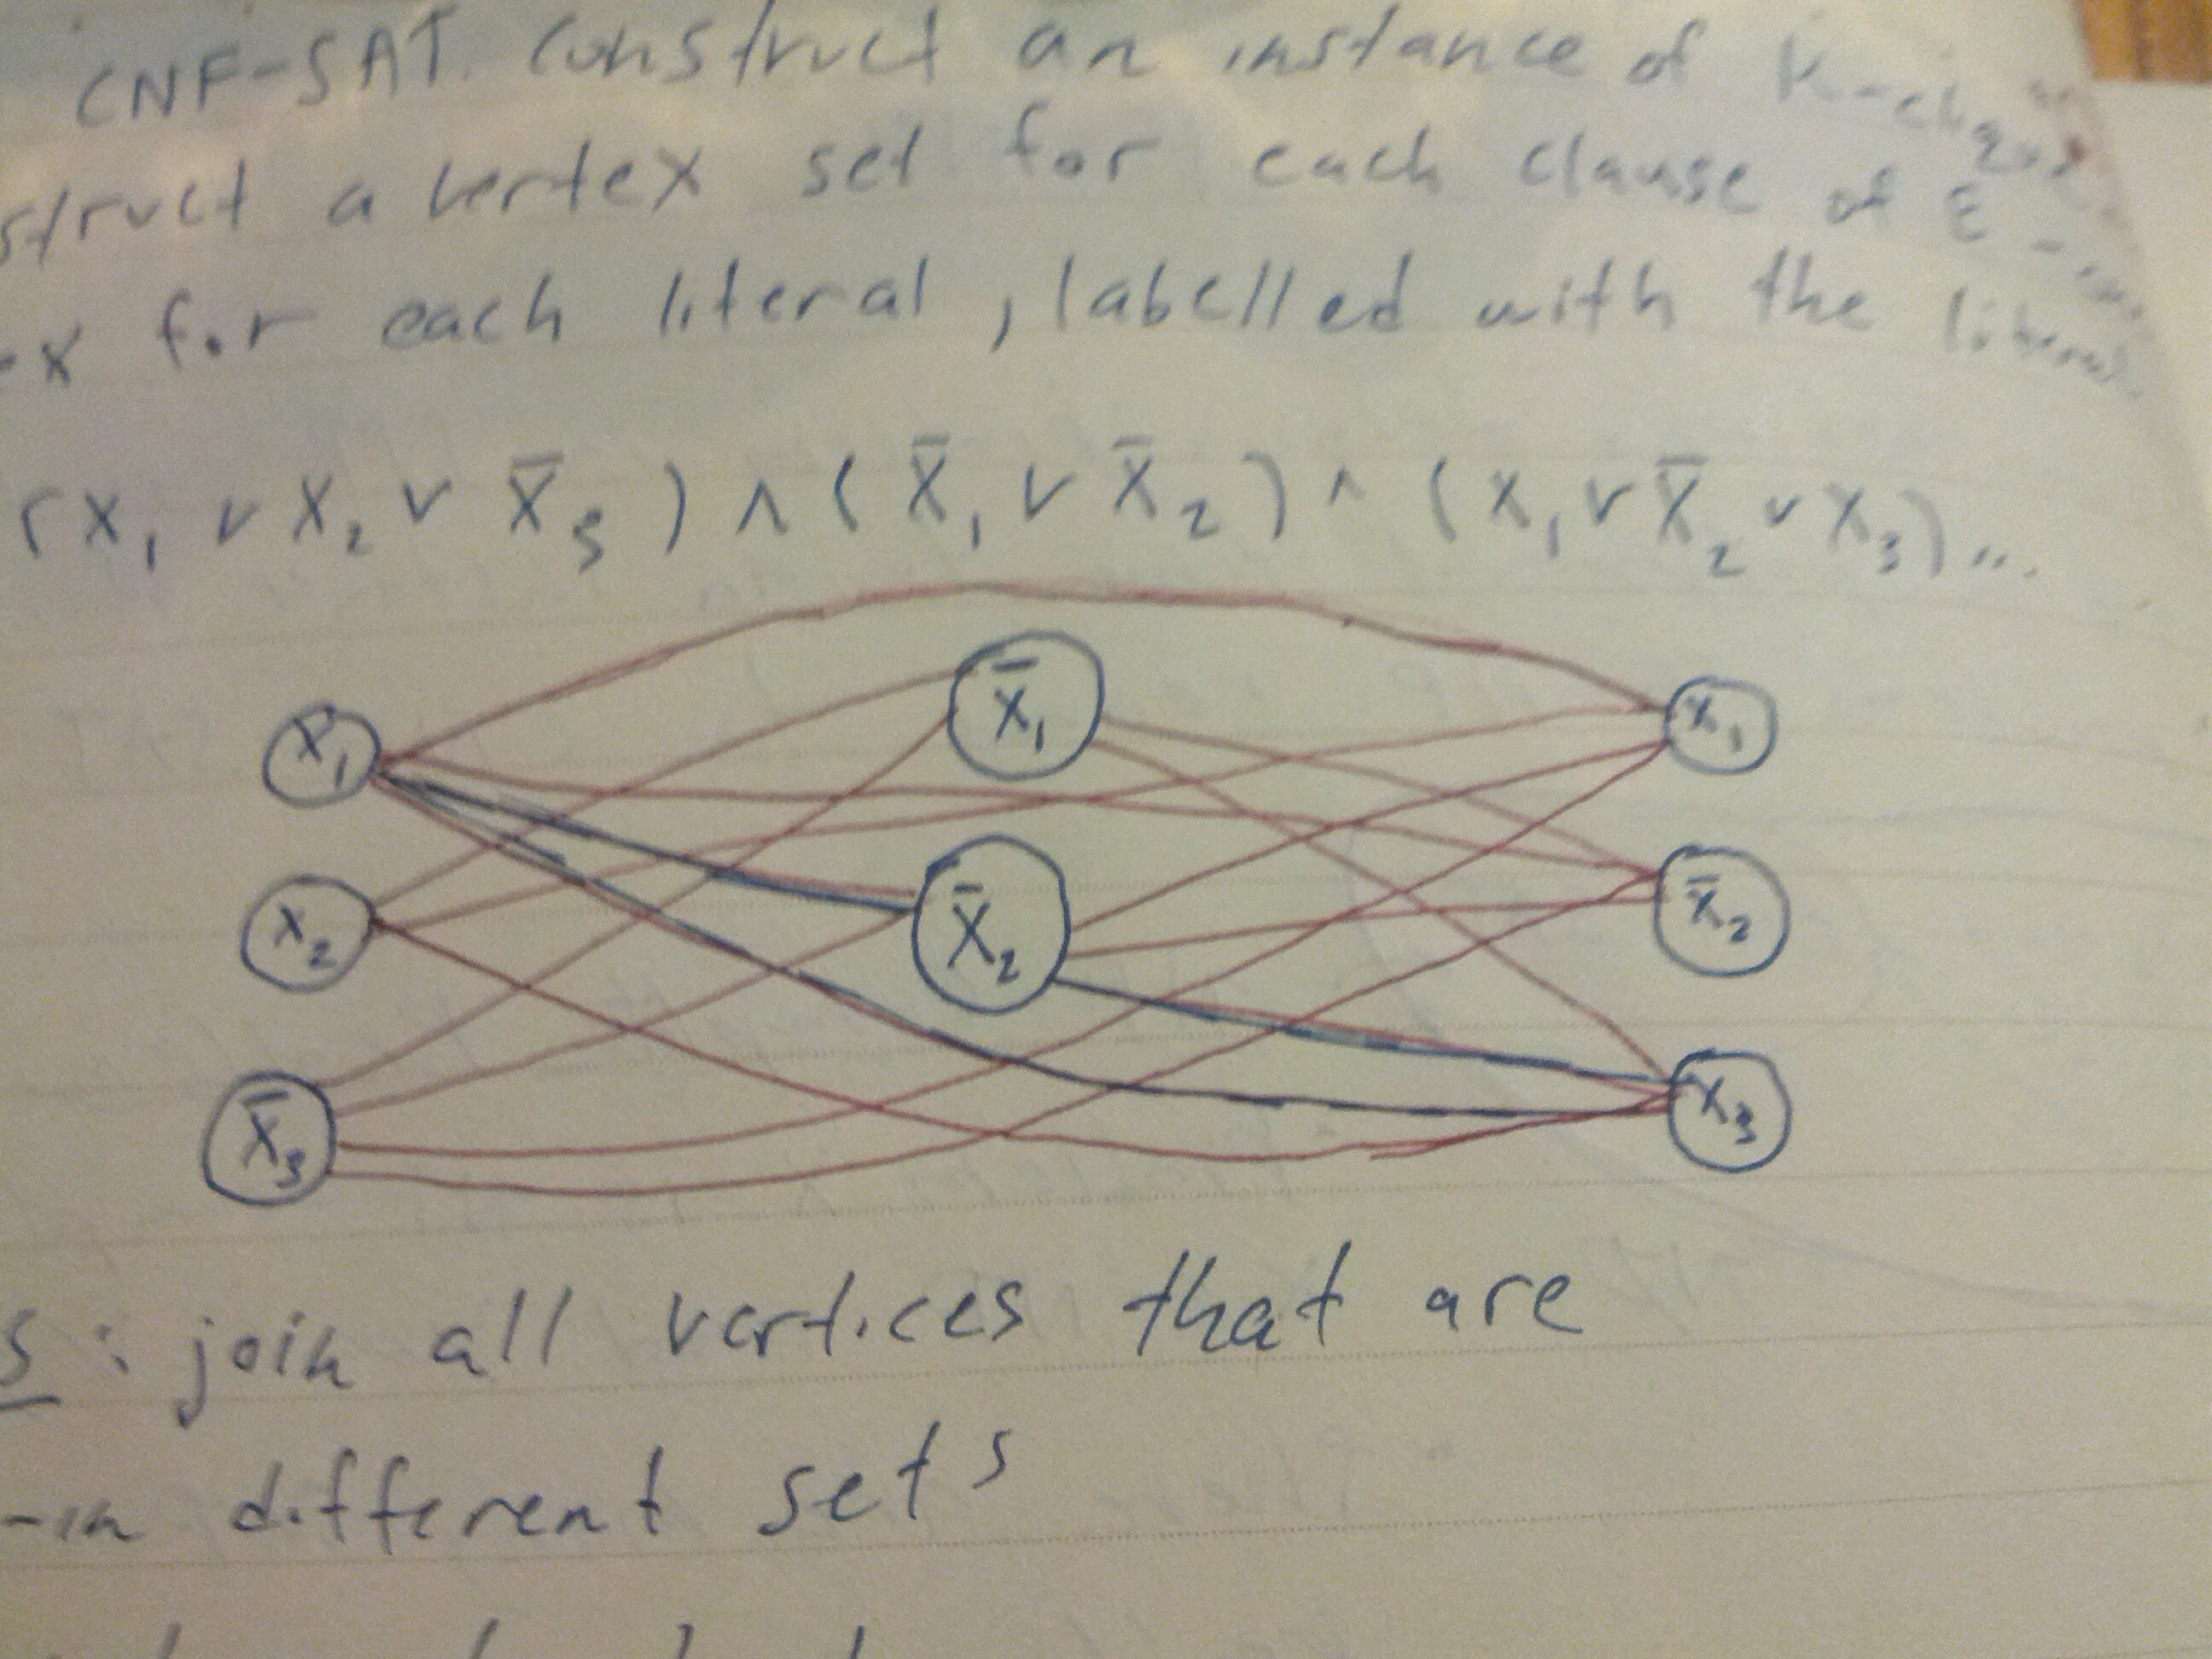 CNF-SAT. Construct an instance of K-
struct a vertex set for each clause of E
ex for each literal, labelled with the literal
(x₁ ∨ x₂ ∨ x̄₃) ∧ (x̄₁ ∨ x̄₂) ∧ (x₁ ∨ x̄₂ ∨ x₃)...
x₁ x̄₁ x₁
x₂ x̄₂ x̄₂
x̄₃ x₃
s: join all vertices that are
-in different sets